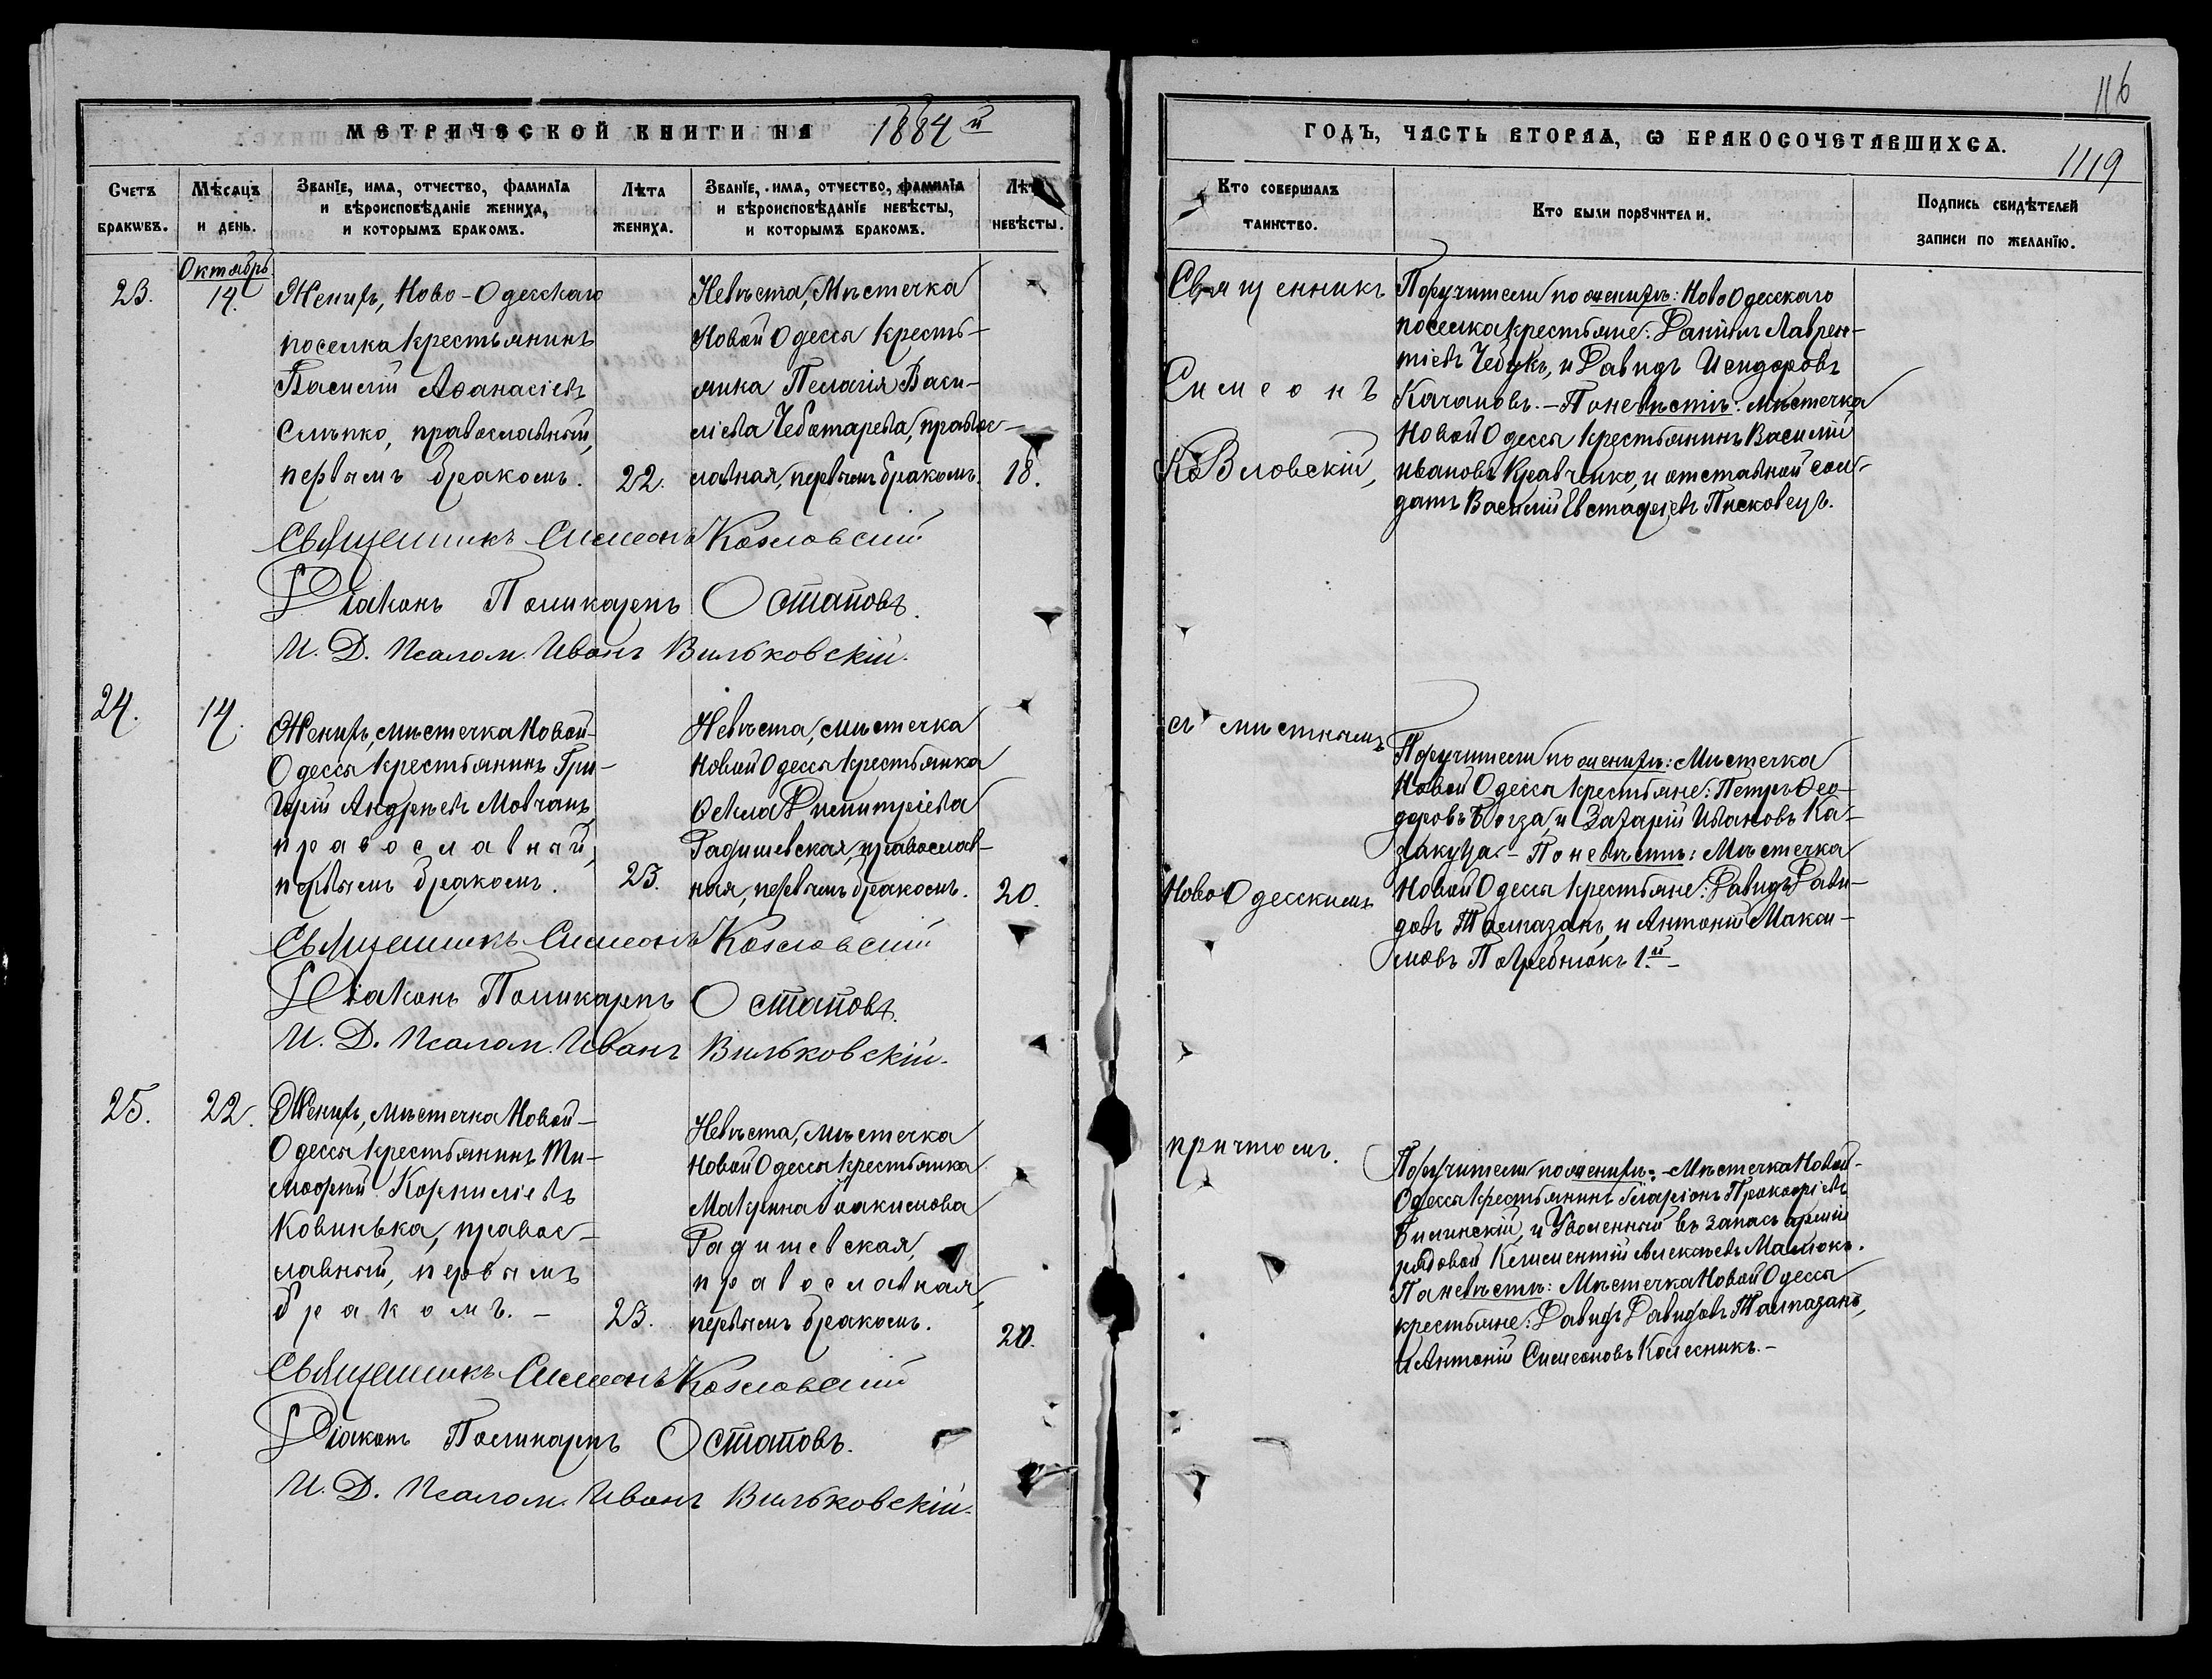 МЕТРИЧЕСКОЙ КНИГИ НА 1884й
Счетъ браковъ.
Мѣсяцъ и день.
Званіе, имя, отчество, фамилія
и вѣроисповѣданіе жениха,
и которымъ бракомъ.
Лѣта жениха.
Званіе, имя, отчество, фамилія
и вѣроисповѣданіе невѣсты,
и которымъ бракомъ.
Лѣта невѣсты.
Октябрь
23.
14.
Женихъ, Ново-Одесскаго
поселка крестьянинъ
Василій Аѳанасіевъ
Слѣпко, православный,
первымъ бракомъ.
22.
Невѣста, Мѣстечка
Новой Одессы кресть-
янка Пелагія Васи-
ліева Чеботарева, правос-
лавная, первымъ бракомъ.
18.
Священникъ Симеонъ Козловскій
Діаконъ Поликарпъ Остаповъ.
И. Д. Псалом. Иванъ Вильковскій.
24.
14.
Женихъ, мѣстечка Новой-
Одессы крестьянинъ Гри-
горій Андреевъ Мовчанъ,
православный,
первымъ бракомъ.
23.
Невѣста, мѣстечка
Новой Одессы крестьянка
Ѳекла Димитріева
Радишевская, православ-
ная, первымъ бракомъ.
20.
Священникъ Симеонъ Козловскій
Діаконъ Поликарпъ Остаповъ.
И. Д. Псалом. Иванъ Вильковскій.
25.
22.
Женихъ, мѣстечка Новой-
Одессы крестьянинъ Ти-
моѳей Корниліевъ
Ковинька, правос-
лавный, первымъ
бракомъ. -
23.
Невѣста, мѣстечка
Новой Одессы крестьянка
Макрина Іоакимова
Радишевская,
православная,
первымъ бракомъ.
20.
Священникъ Симеонъ Козловскій
Діаконъ Поликарпъ Остаповъ.
И. Д. Псалом. Иванъ Вильковскій.
116
ГОДЪ, ЧАСТЬ ВТОРАЯ, Ѡ БРАКОСОЧЕТАВШИХСЯ.
1119
Кто совершалъ
таинство.
Кто были поручители.
Подпись свидѣтелей
записи по желанію.
Священникъ
Симеонъ
Козловскій,
съ мѣстнымъ
Новоодесскимъ
причтомъ.
Поручители по женихѣ: Ново Одесскаго
поселка крестьяне: Даніилъ Лаврен-
тіевъ Чебукъ, и Давидъ Исидоровъ
Качановъ. - По невѣстѣ: мѣстечка
Новой Одессы крестьянинъ Василій
Ивановъ Кравченко, и отставной сол-
датъ Василій Евстафіевъ Писковецъ.
Поручители по женихѣ: Мѣстечка
Новой Одессы крестьяне: Петръ Ѳео-
доровъ Богза, и Захарій Ивановъ Ка-
закуца. - По невѣстѣ: Мѣстечка
Новой Одессы крестьяне: Давидъ Дави-
довъ Талмазанъ, и Антоній Макси-
мовъ Погребнюкъ 1.й -
Поручители по женихѣ: Мѣстечка Новой-
Одессы крестьянинъ Иларіонъ Прокофіевъ
Билинскій, и Уволенный въ запасъ арміи
рядовой Климентій Алексѣевъ Малюкъ.
По невѣстѣ: Мѣстечка Новой Одессы
крестьяне: Давидъ Давидовъ Талмазанъ,
и Антоній Симеоновъ Колесникъ. -